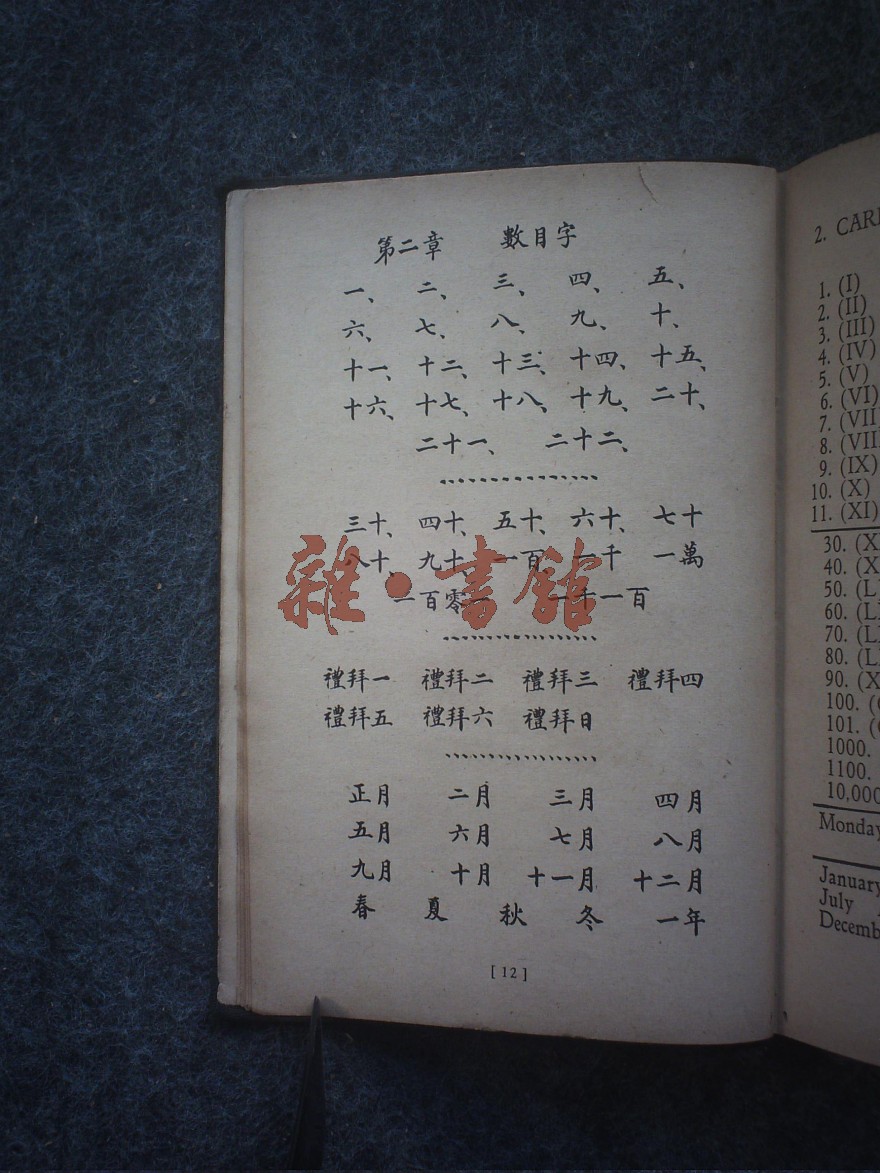 第二章 數目字
一、 二、 三、 四、 五、
六、 七、 八、 九、 十、
十一、 十二、 十三、 十四、 十五、
十六、 十七、 十八、 十九、 二十、
二十一、 二十二、
三十、 四十、 五十、 六十、 七十
八十、 九十、 一百 一千 一萬
一百零一 一千一百
雜·書館
禮拜一 禮拜二 禮拜三 禮拜四
禮拜五 禮拜六 禮拜日
正月 二月 三月 四月
五月 六月 七月 八月
九月 十月 十一月 十二月
春 夏 秋 冬 一年
[12]
2. CAR
1. (I)
2. (II)
3. (III)
4. (IV)
5. (V)
6. (VI)
7. (VII
8. (VII
9. (IX)
10. (X)
11. (XI)
30. (X
40. (X
50. (L
60. (L
70. (L
80. (L
90. (X
100. (
101. (
1000.
1100.
10,000
Monday
January
July
Decemb